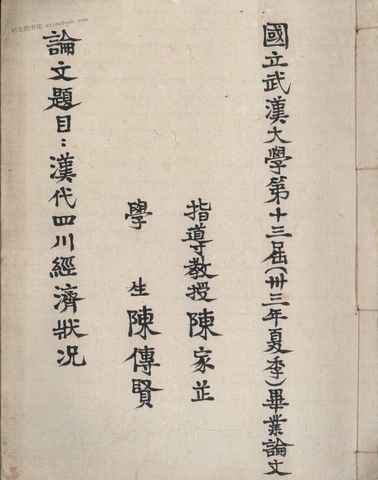 國立武漢大學第十三屆(卅三年夏季)畢業論文
指導教授陳家芷
學生陳傳賢
論文題目：漢代四川經濟狀況